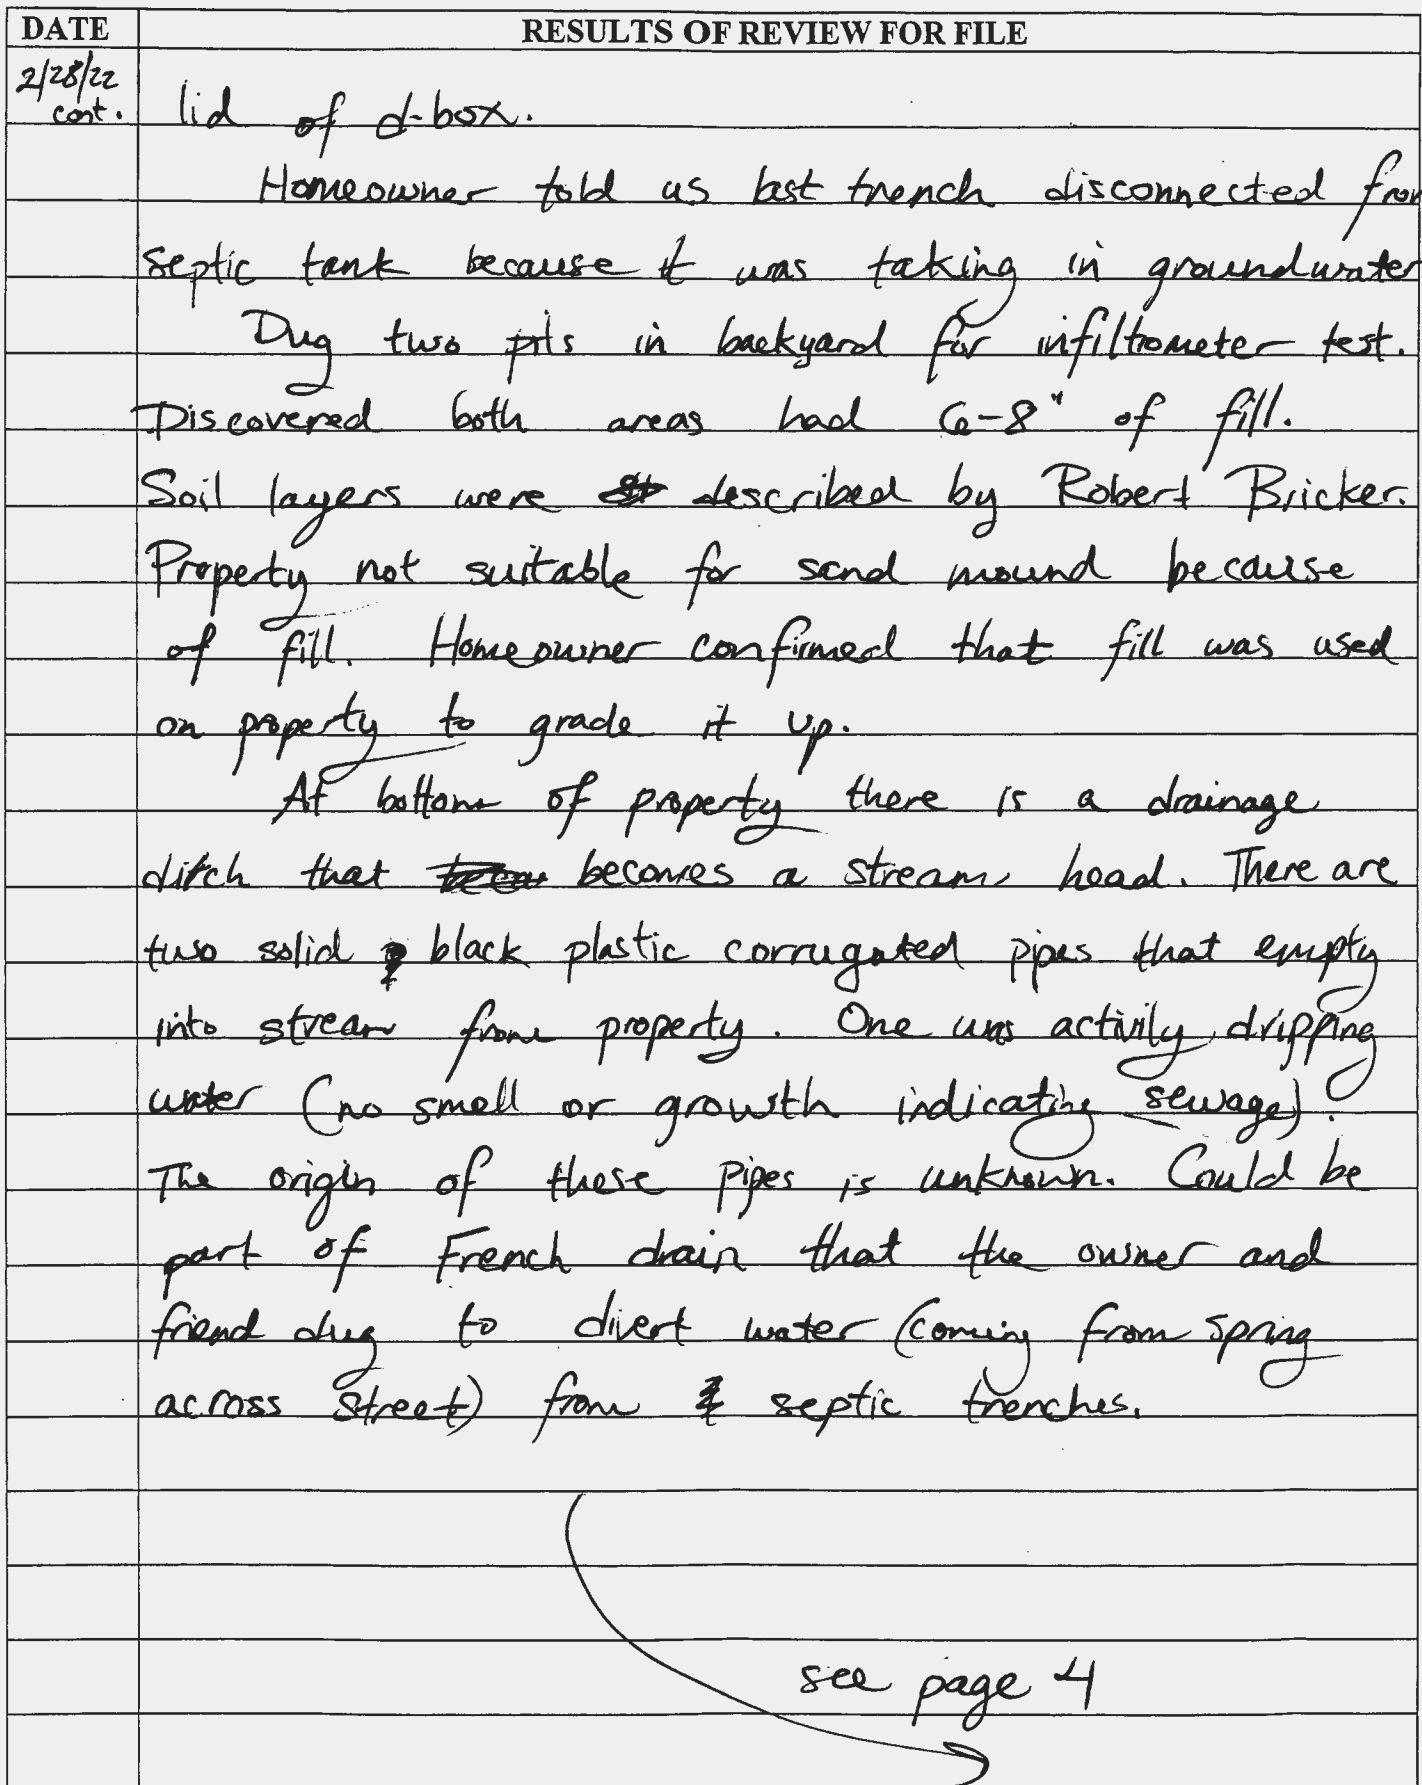 DATE RESULTS OF REVIEW FOR FILE
2/28/22
cont. lid of d-box.
Homeowner told us last trench disconnected from
septic tank because it was taking in groundwater
Dug two pits in backyard for infiltrometer test.
Discovered both areas had 6-8" of fill.
Soil layers were described by Robert Bricker.
Property not suitable for sand mound because
of fill. Homeowner confirmed that fill was used
on property to grade it up.
At bottom of property there is a drainage
ditch that becomes a stream head. There are
two solid black plastic corrugated pipes that empty
into stream from property. One was activily dripping
water (no smell or growth indicating sewage).
The origin of these pipes is unknown. Could be
part of French drain that the owner and
friend dug to divert water (coming from spring
across street) from septic trenches.
see page 4